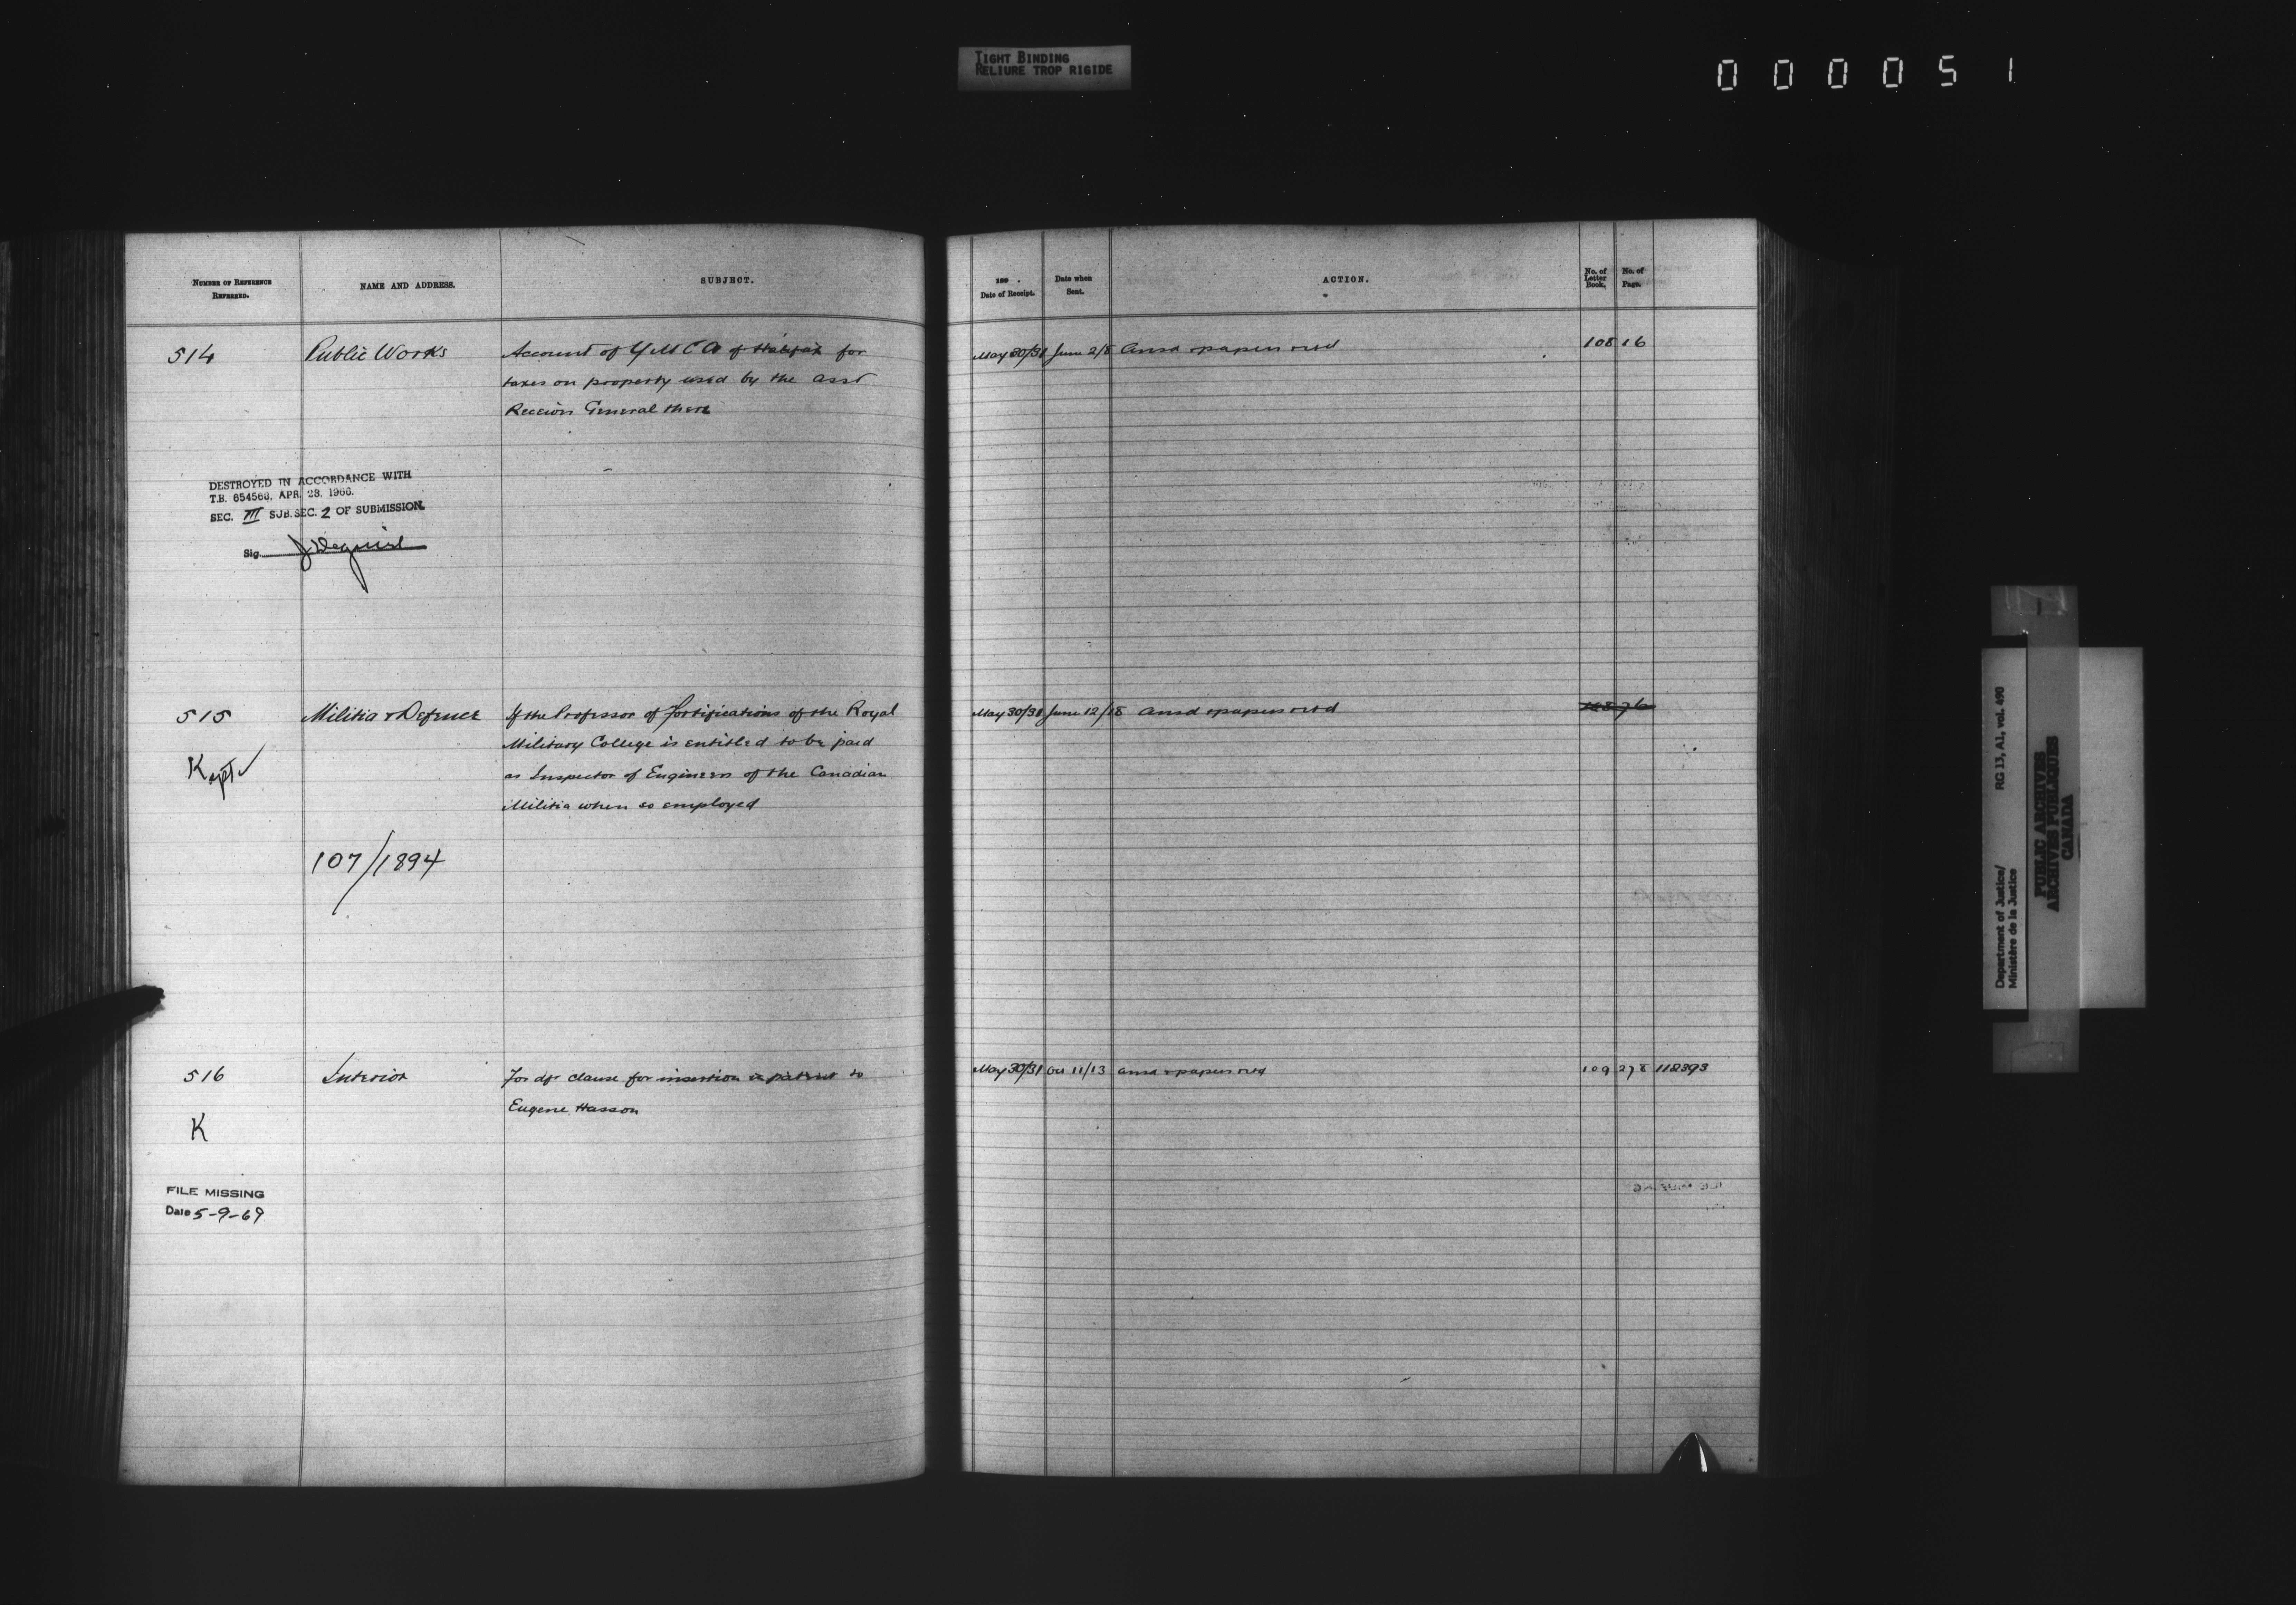 TIGHT BINDING
RELIURE TROP RIGIDE
0 0 0 0 5 1
NUMBER OF REFERENCE
REFERRED.
NAME AND ADDRESS.
SUBJECT.
189 .
Date of Receipt.
Date when
Sent.
ACTION.
No. of
Letter
Book.
No. of
Page.
514 Public Works Account of YMCA of Halifax for May 30/31 June 2/8 Ansd & papers retd 108 16
taxes on property used by the Asst
Receiver General there
DESTROYED IN ACCORDANCE WITH
T.B. 654568, APR. 28, 1966.
SEC. III SUB.SEC. 2 OF SUBMISSION.
Sig.
515 Militia & Defence If the Professor of fortifications of the Royal May 30/31 June 12/18 Ansd & papers retd
Military College is entitled to be paid
Kept ✓
as Inspector of Engineers of the Canadian
Militia when so employed
107/1894
516 Interior For dft clause for insertion in patent to May 30/31 Oct 11/13 Ansd & papers retd 109 278 112393
Eugene Hasson
K
FILE MISSING
Date 5-9-69
Department of Justice/ RG 13, A1, vol. 490
Ministère de la Justice
PUBLIC ARCHIVES
ARCHIVES PUBLIQUES
CANADA